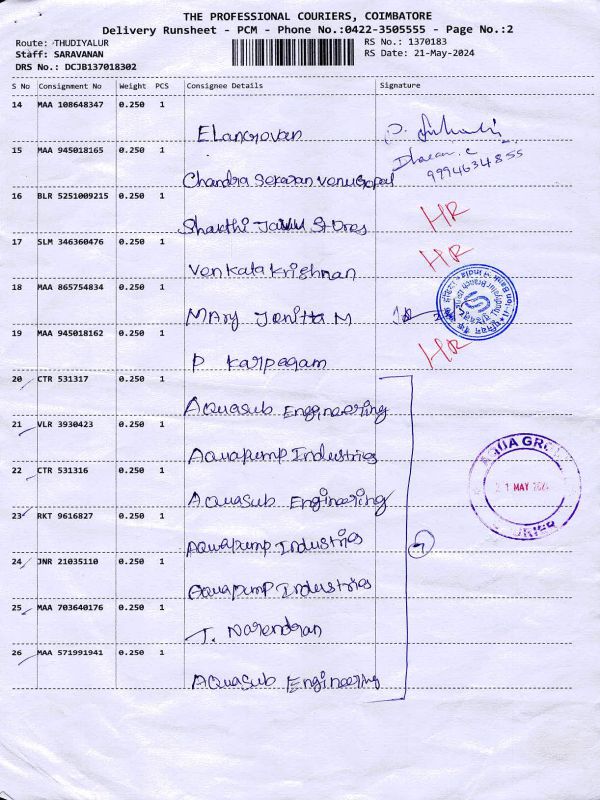 THE PROFESSIONAL COURIERS, COIMBATORE
Delivery Runsheet - PCM - Phone No.:0422-3505555 - Page No.:2
Route: THUDIYALUR
RS No.: 1370183
Staff: SARAVANAN
RS Date: 21-May-2024
DRS No.: DCJB137018302
S No Consignment No Weight PCS Consignee Details Signature
14 MAA 108648347 0.250 1
Elangovan
15 MAA 945018165 0.250 1
Dharani.c
9994634855
Chandra Sekaran Venugopal
16 BLR 5251009215 0.250 1
Shakthi Stores HR
17 SLM 346360476 0.250 1
Venkatakrishnan HR
18 MAA 865754834 0.250 1
Mary Jenitta M
19 MAA 945018162 0.250 1
P Karpagam HR
20 CTR 531317 0.250 1
Aquasub Engineering
21 VLR 3930423 0.250 1
Aquapump Industries
22 CTR 531316 0.250 1
Aquasub Engineering
AQUA GROUP
21 MAY 2024
23 RKT 9616827 0.250 1
Aquapump Industries
7
24 JNR 21035110 0.250 1
Aquapump Industries
25 MAA 703640176 0.250 1
T. Narendran
26 MAA 571991941 0.250 1
Aquasub Engineering